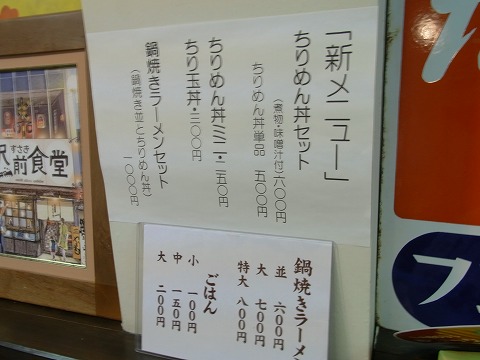 「新メニュー」
ちりめん丼セット
(煮物・味噌汁付)六〇〇円
ちりめん丼単品　五〇〇円
ちりめん丼ミニ・二五〇円
ちり玉丼・三〇〇円
鍋焼きラーメンセット
(鍋焼き並とちりめん丼)
一〇〇〇円
鍋焼きラーメン
並　六〇〇円
大　七〇〇円
特大　八〇〇円
ごはん
小　一〇〇円
中　一五〇円
大　二〇〇円
すさき
駅前食堂
フ